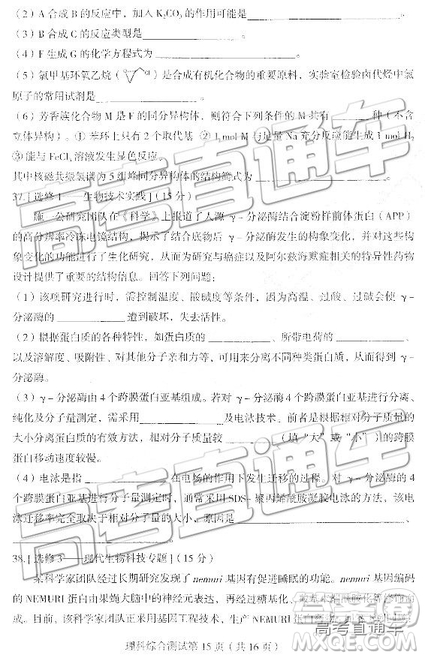 (2) A 合成 B 的反应中，加入 K₂CO₃ 的作用可能是______。
(3) B 合成 C 的反应类型是______。
(4) F 生成 G 的化学方程式为______。
(5) 氯甲基环氧乙烷（ ）是合成有机化合物的重要原料，实验室检验卤代烃中氯
原子的常用试剂是______。
(6) 芳香族化合物 M 是 F 的同分异构体，则符合下列条件的 M 共有______种（不含
立体异构）。① 苯环上只有 2 个取代基 ② 1 mol M 与足量 Na 充分反应能生成 1 mol H₂
③能与 FeCl₃ 溶液发生显色反应
其中核磁共振氢谱为 5 组峰同分异构体的结构简式为
37.[选修1——生物技术实践]（15 分）
公研究团队在《科学》上报道了人源 γ－分泌酶结合淀粉样前体蛋白（APP）
的高分辨率冷冻电镜结构，揭示了 γ－分泌酶发生的构象变化，并对这些构
象变化的功能进行了生化研究，从而为研究与癌症以及阿尔兹海默症相关的特异性药物
设计提供了重要的结构信息。回答下列问题：
(1) 该项研究进行时，需控制温度、酸碱度等条件。因为高温、过酸、过碱会使 γ－
分泌酶的______遭到破坏，失去活性。
(2) 根据蛋白质的各种特性，如蛋白质的______、所带电荷的______、
以及溶解度、吸附性、对其他分子的亲和力等，可用来分离不同种类蛋白质，从而得到 γ－
分泌酶。
(3) γ－分泌酶由 4 个跨膜蛋白亚基组成。若对 γ－分泌酶的 4 个跨膜蛋白亚基进行分离、
纯化及分子量测定，需采用______及电泳技术。前者是根据相对分子质量的
大小分离蛋白质的有效方法，相对分子质量较______（填“大”或“小”）的跨膜
蛋白移动速度较慢。
(4) 电泳是指______在电场的作用下发生迁移的过程。对 γ－分泌酶的 4
个跨膜蛋白亚基进行分子量测定时，通常采用 SDS-聚丙烯酰胺凝胶电泳的方法，其电
泳迁移率完全取决于分子的大小。
38.[选修3——现代生物科技专题]（15 分）
某科学家团队经过长期研究发现了 nemuri 基因有促进睡眠的功能。nemuri 基因编码
的 NEMURI 蛋白由果蝇大脑中的神经元表达，
或。目前，该科学家团队正采用基因工程技术，生产 NEMURI 蛋白
理科综合测试第 15 页（共 16 页）
高考直通车
高考直通车
高考直通车